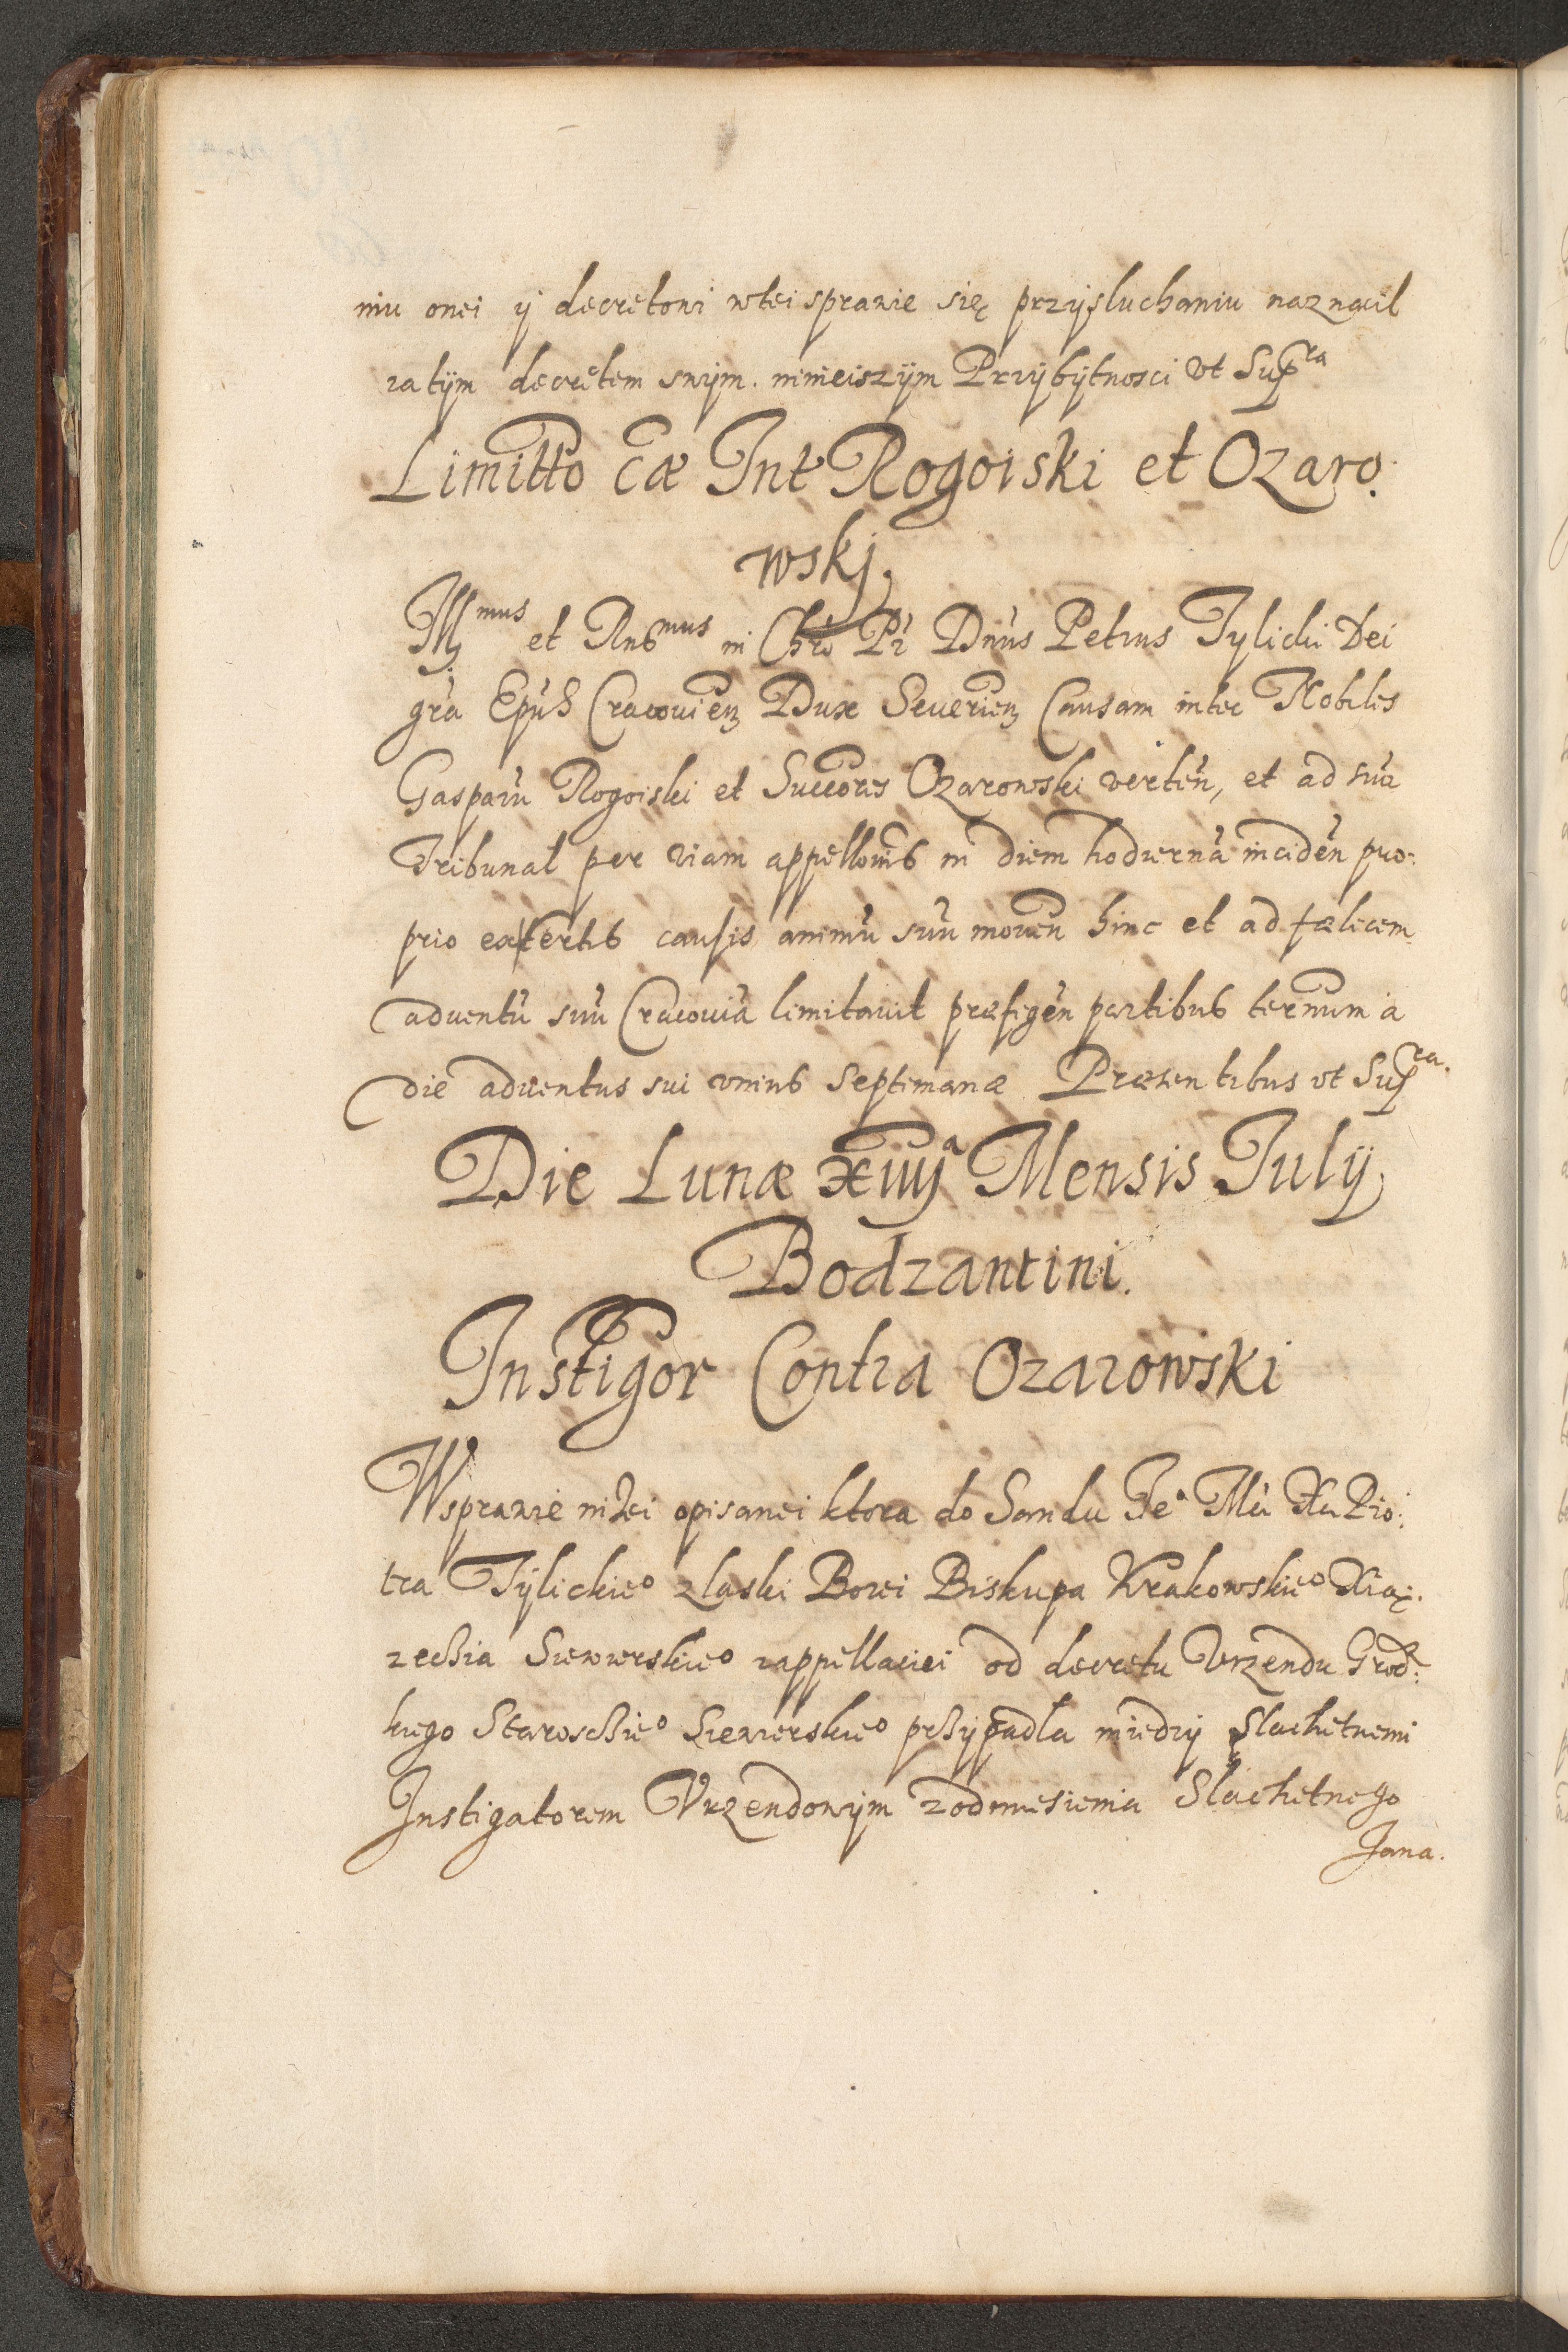 niu onei ÿ decretowi wtei sprawie się przÿsluchaniu naznacil
zatÿm decretem swÿm. ninieiszÿm Przÿbÿtnosci vt Supra
Limitto Cæ Int Rogoiski et Ozaro.
wskj.
Illmus et Rndmus in Chrõ Pr Dnus Petrus Tylicki Dei
gra Epus Cracouien Dux Seuerien Causam inter Nobiles
Gasparu Rogoiski et Succores Ozarowski verten, et ad sua
Tribunal per viam appellonis in diem hodierna inciden pro:
prio ex certis causis animu suu mouen hinc et ad fælicem
aduentu suu Cracouia limitauit præfigen partibus terminum a
die aduentus sui vnius Septimanæ Præsentibus vt Supra.
Die Lunæ xiiijª Mensis Julÿ
Bodzantini.
Instigor Contra Ozarowski
Wsprawie nizei opisanei ktora do Sandu Je° Mci Xa Pio:
tra Tÿlickie° zlaski Bozei Biskupa Krakowskie° Xiąz.
zechia Siewierskie° zappellaciei od decretu Vrzendu Grodz:
kiego Staroschie° Siewierskie° prhÿpadla miedzÿ Slachetnemi
Instigatorem Vrzendowÿm zodniesienia Slachetnego
Jana.